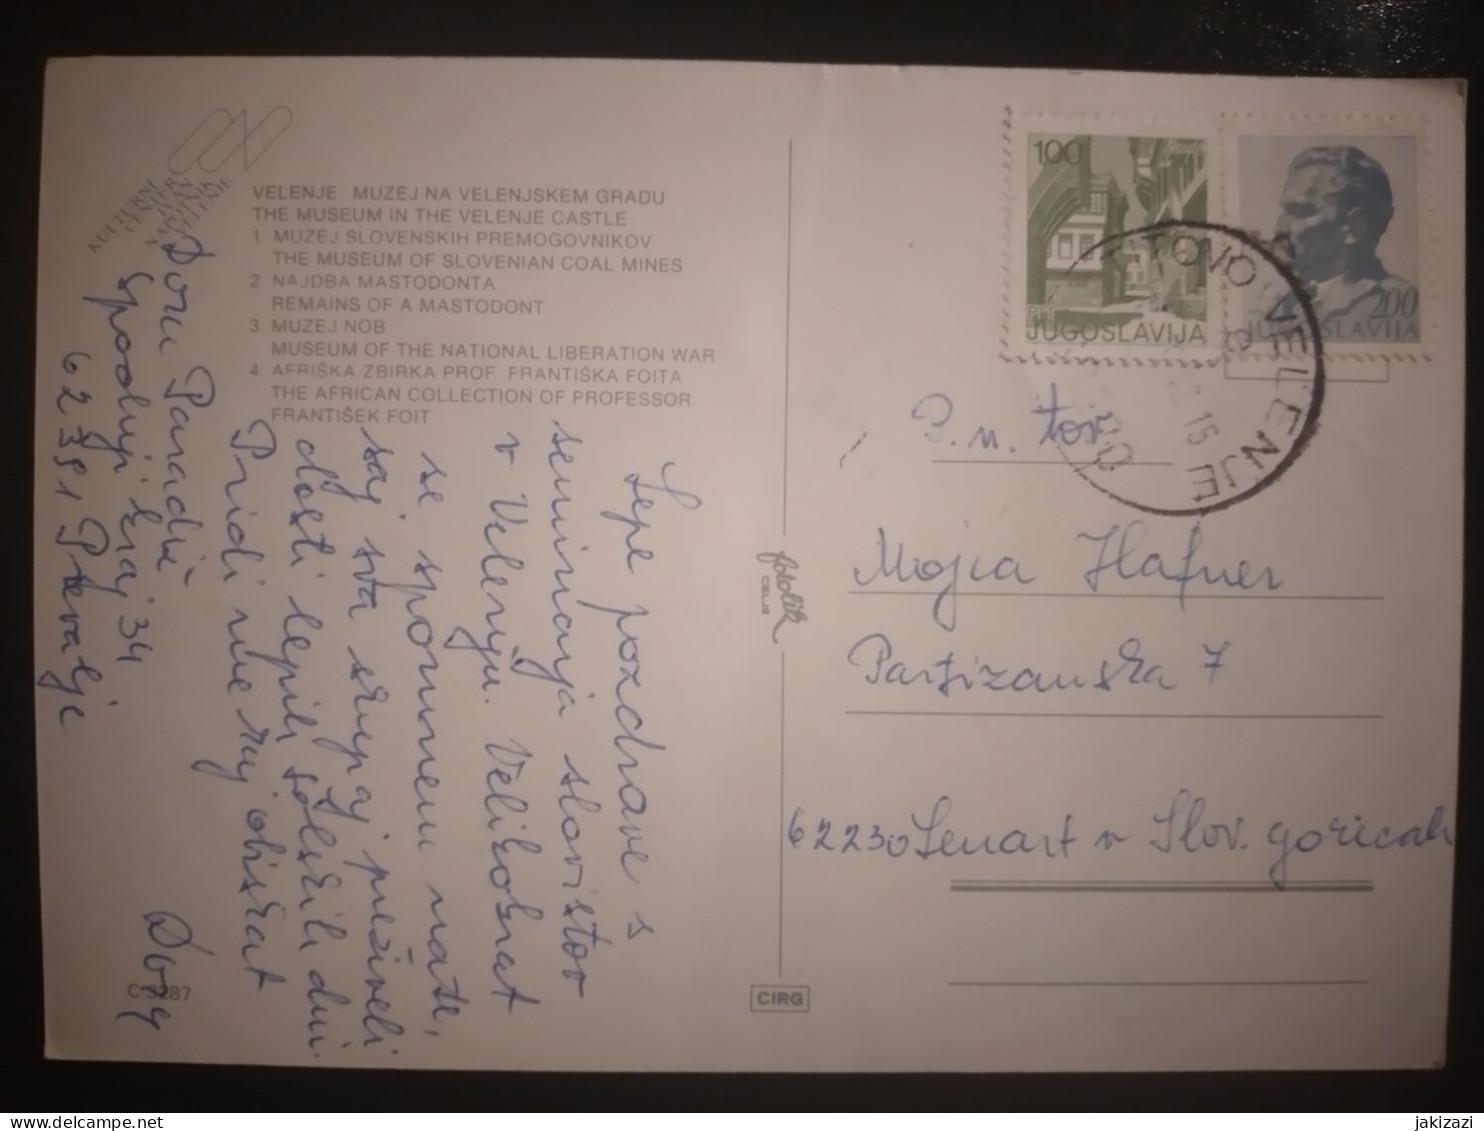 KULTURNI
CENTER
IVAN
NAPOTNIK
VELENJE
VELENJE: MUZEJ NA VELENJSKEM GRADU
THE MUSEUM IN THE VELENJE CASTLE
1 MUZEJ SLOVENSKIH PREMOGOVNIKOV
THE MUSEUM OF SLOVENIAN COAL MINES
2 NAJDBA MASTODONTA
REMAINS OF A MASTODONT
3. MUZEJ NOB
MUSEUM OF THE NATIONAL LIBERATION WAR
4 AFRIŠKA ZBIRKA PROF. FRANTIŠKA FOITA
THE AFRICAN COLLECTION OF PROFESSOR
FRANTIŠEK FOIT
Lepe pozdrave s
seminarja slavistov
v Velenju. Velikokrat
se spomnem nate,
saj sva skupaj preživeli
dosti lepih šolskih dni.
Pridi me kaj obiskat
Dora
Dora Paradiž
Spodnji kraj 34
62391 Prevalje
C-3287
fotolik
CELJE
CIRG
100
JUGOSLAVIJA
200
JUGOSLAVIJA
TITOVO VELENJE
15
P. n. tov
Mojca Hafner
Partizanska 7
62230 Lenart v Slov. goricah
jakizazi
delcampe.net